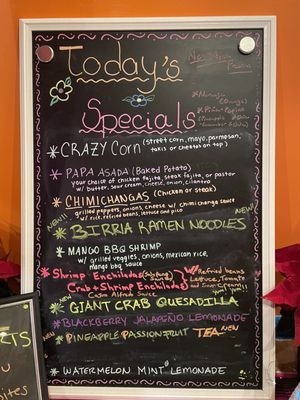 Today's
Specials
* CRAZY Corn (street corn, mayo, parmesan,
takis or cheetah on top)
* PAPA ASADA (Baked Potato)
your choice of chicken fajita, steak fajita, or pastor
w/ butter, sour cream, cheese, onion, cilantro
* CHIMICHANGAS (chicken or steak)
grilled peppers, onions, cheese w/ chimichanga sauce
w/ rice, refried beans, lettuce and pico
NEW!!
* BIRRIA RAMEN NOODLES NEW
* MANGO BBQ SHRIMP
w/ grilled veggies, onions, mexican rice,
mango bbq sauce
* Shrimp Enchiladas
Crab + Shrimp Enchiladas
w/ Refried beans
Lettuce, Tomato,
and Sour Cream
* GIANT CRAB QUESADILLA Yum! Yum!!
NEW
* BLACKBERRY JALAPEÑO LEMONADE
* PINEAPPLE PASSIONFRUIT TEA NEW
NEW
* WATERMELON MINT LEMONADE